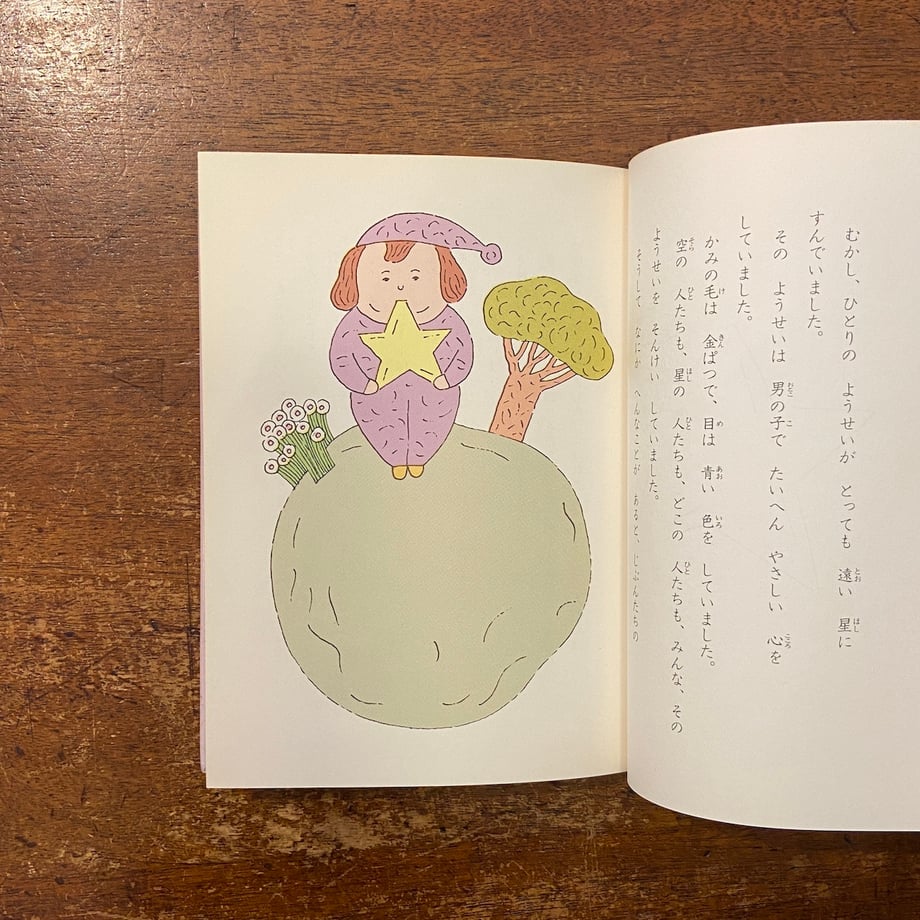 むかし、ひとりの ようせいが とっても 遠い 星に
すんでいました。
その ようせいは 男の子で たいへん やさしい 心を
していました。
かみの毛は 金ぱつで、目は 青い 色を していました。
空の 人たちも、星の 人たちも、どこの 人たちも、みんな、その
ようせいを そんけい していました。
そうして なにか へんなことが あると、じぶんたちの